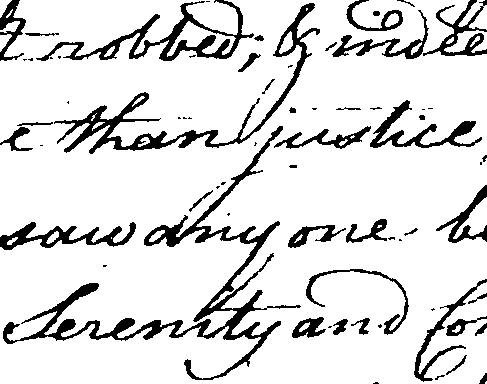 robbed; & indee
than justice
saw any one be
Serenity and Con